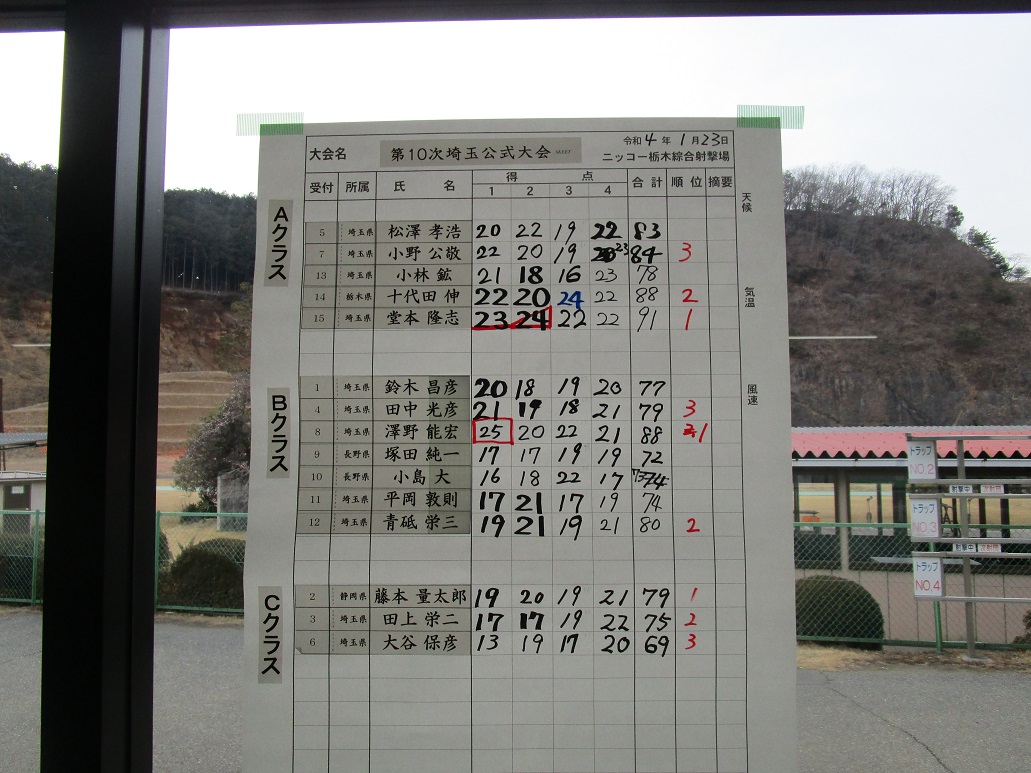 令和4年1月23日
大会名 第10次埼玉公式大会 ニッコー栃木綜合射撃場
受付 所属 氏名 得点 合計 順位 摘要
1 2 3 4
天候
Aクラス
5 埼玉県 松澤 孝浩 20 22 19 22 83
7 埼玉県 小野 公敬 22 20 19 23 84 3
13 埼玉県 小林 鉱 21 18 16 23 78
14 栃木県 十代田 伸 22 20 24 22 88 2
15 埼玉県 堂本 隆志 23 24 22 22 91 1
気温
Bクラス
1 埼玉県 鈴木 昌彦 20 18 19 20 77
4 埼玉県 田中 光彦 21 19 18 21 79 3
8 埼玉県 澤野 能宏 25 20 22 21 88 1
9 長野県 塚田 純一 17 17 19 19 72
10 長野県 小島 大 16 18 22 17 73 74
11 埼玉県 平岡 敦則 17 21 17 19 74
12 埼玉県 青砥 栄三 19 21 19 21 80 2
風速
Cクラス
2 静岡県 藤本 量太郎 19 20 19 21 79 1
3 埼玉県 田上 栄二 17 17 19 22 75 2
6 埼玉県 大谷 保彦 13 19 17 20 69 3
トラップ
NO.2
射撃中
トラップ
NO.3
射撃中
トラップ
NO.4